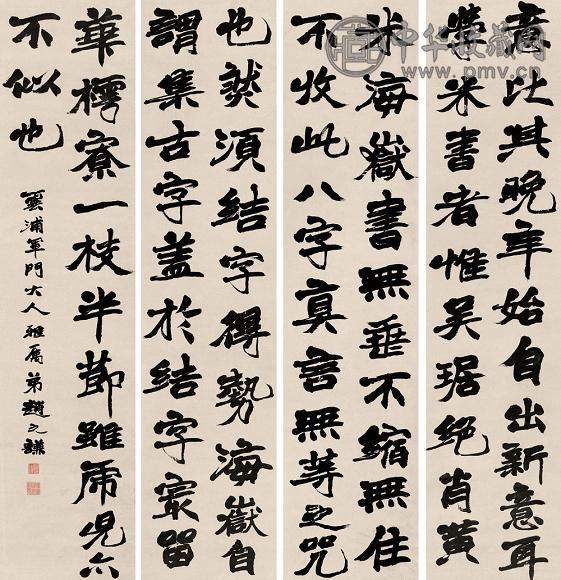 意比其晚年始自出新意耳
學米書者惟吳琚絕肖黃
米海嶽書無垂不縮無往
不收此八字真言無等之咒
也然須結字得勢海嶽自
謂集古字蓋於結字最留
華樗寮一枝半節雖虎兒亦
不似也
雲浦軍門大人雅屬弟趙之謙
中华收藏网
www.pmv.cn